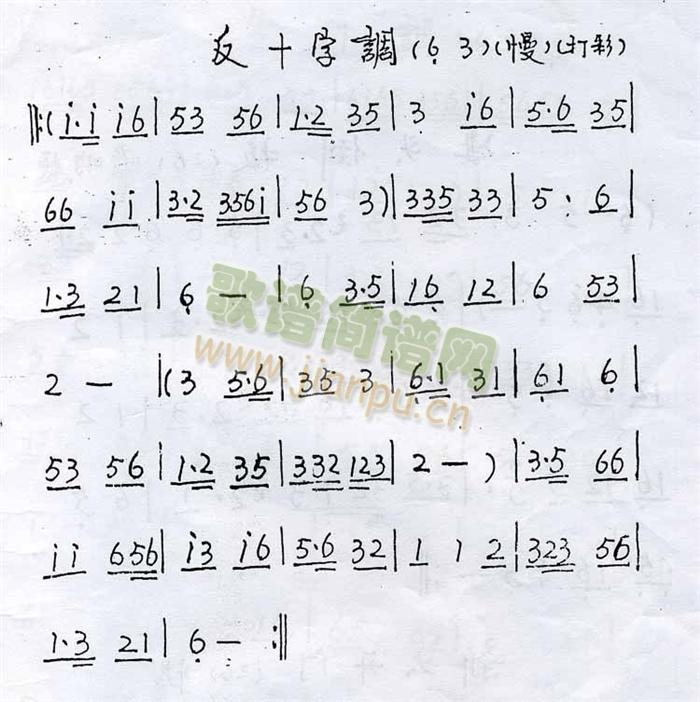 反十字調(6̣ 3)(慢)(打彩)
‖:(i·i i6|53 56|1·2 35|3 i6|5·6 35|
66 ii|3·2 356i|56 3)|335 33|5· 6|
1·3 21|6̣ —|6̣ 3·5|16̣ 12|6 53|
2 — |(3 5·6|35 3|6̣·1 31|6̣1 6̣|
53 56|1·2 35|332 123|2—)|3·5 66|
ii 656|i3 i6|5·6 32|1 1 2|323 56|
1·3 21|6̣ — :‖
歌谱简谱网
www.jianpu.cn